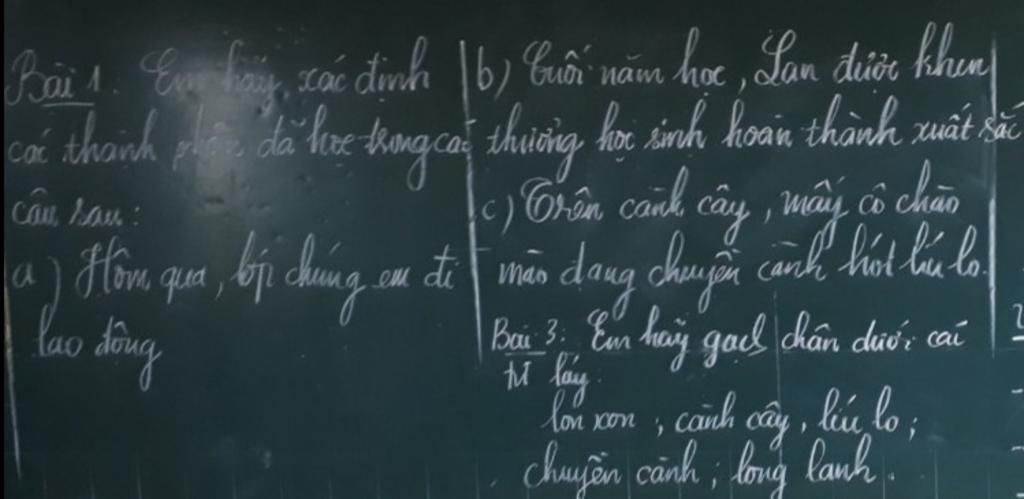 Bài 1. Em hãy xác định
các thành phần đã học trong các
câu sau:
a) Hôm qua, lớp chúng em đi
lao động
b) Cuối năm học, Lan được khen
thưởng học sinh hoàn thành xuất sắc
c) Trên cành cây, mấy cô chào
mào đang chuyền cành hót líu lo.
Bài 3: Em hãy gạch chân dưới các
từ láy.
lon xon; cành cây, líu lo;
chuyền cành; long lanh.